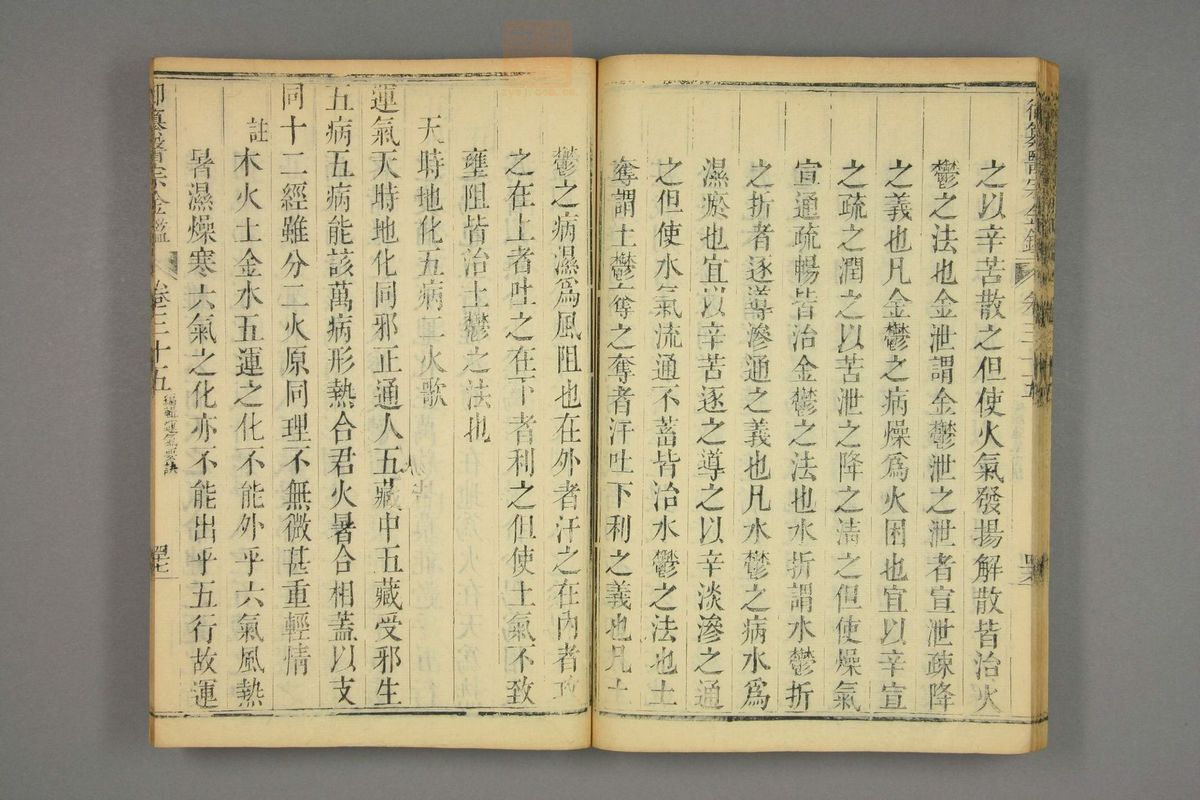 御纂醫宗金鑑 卷三十五
之以辛苦散之但使火氣發揚解散皆治火
鬱之法也金泄謂金鬱泄之泄者宣泄疎降
之義也凡金鬱之病燥為火困也宜以辛宣
之疏之潤之以苦泄之降之清之但使燥氣
宣通疏暢皆治金鬱之法也水折謂水鬱折
之折者逐導滲通之義也凡水鬱之病水為
濕瘀也宜以辛苦逐之導之以辛淡滲之通
之但使水氣流通不蓄皆治水鬱之法也土
奪謂土鬱奪之奪者汗吐下利之義也凡土
鬱之病濕為風阻也在外者汗之在內者攻
之在上者吐之在下者利之但使土氣不致
壅阻皆治土鬱之法也
天時地化五病二火歌
運氣天時地化同邪正通人五藏中五藏受邪生
五病五病能該萬病形熱合君火暑合相蓋以支
同十二經雖分二火原同理不無微甚重輕情
註
木火土金水五運之化不能外乎六氣風熱
暑濕燥寒六氣之化亦不能出乎五行故運
御纂醫宗金鑑 卷三十五 編輯運氣要訣